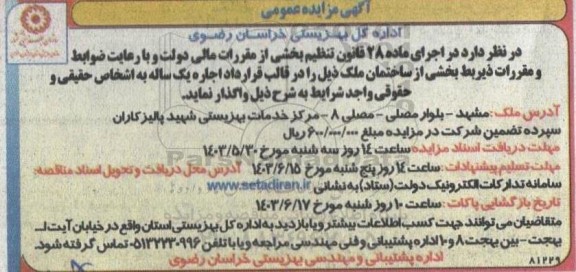 آگهی مزایده عمومی
اداره کل بهزیستی خراسان رضوی
در نظر دارد در اجرای ماده ۲۸ قانون تنظیم بخشی از مقررات مالی دولت و با رعایت ضوابط
و مقررات ذیربط بخشی از ساختمان ملک ذیل را در قالب قرارداد اجاره یک ساله به اشخاص حقیقی و
حقوقی واجد شرایط به شرح ذیل واگذار نماید.
آدرس ملک: مشهد - بلوار مصلی - مصلی ۸ - مرکز خدمات بهزیستی شهید پالیزکاران
سپرده تضمین شرکت در مزایده مبلغ ۶۰۰/۰۰۰/۰۰۰ ریال
مهلت دریافت اسناد مزایده ساعت ۱۴ روز سه شنبه مورخ ۱۴۰۳/۵/۳۰
مهلت تسلیم پیشنهادات: ساعت ۱۴ روز پنج شنبه مورخ ۱۴۰۳/۶/۱۵ آدرس محل دریافت و تحویل اسناد مناقصه:
سامانه تدارکات الکترونیک دولت (ستاد) به نشانی www.setadiran.ir
تاریخ بازگشایی پاکات: ساعت ۱۰ روز شنبه مورخ ۱۴۰۳/۶/۱۷
متقاضیان می توانند جهت کسب اطلاعات بیشتر و یا بازدید به اداره کل بهزیستی استان واقع در خیابان آیت ا...
بهجت - بین بهجت ۸ و ۱۰ اداره پشتیبانی و فنی مهندسی مراجعه و یا با تلفن ۰۵۱۳۲۲۳۰۹۹۶ تماس گرفته شود.
اداره پشتیبانی و مهندسی بهزیستی خراسان رضوی
۸۱۲۲۹